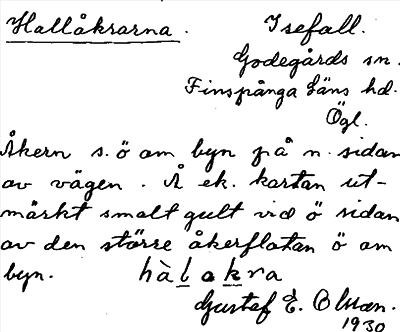 Hallåkrarna. Isefall.
Godegårds sn.
Finspånga läns hd.
Ögl.
Åkern s.ö om byn på n. sidan
av vägen. Å ek. kartan ut-
märkt smalt gult vid ö sidan
av den större åkerflatan ö om
byn. hàlakra
Gustaf E. Olsson.
1930